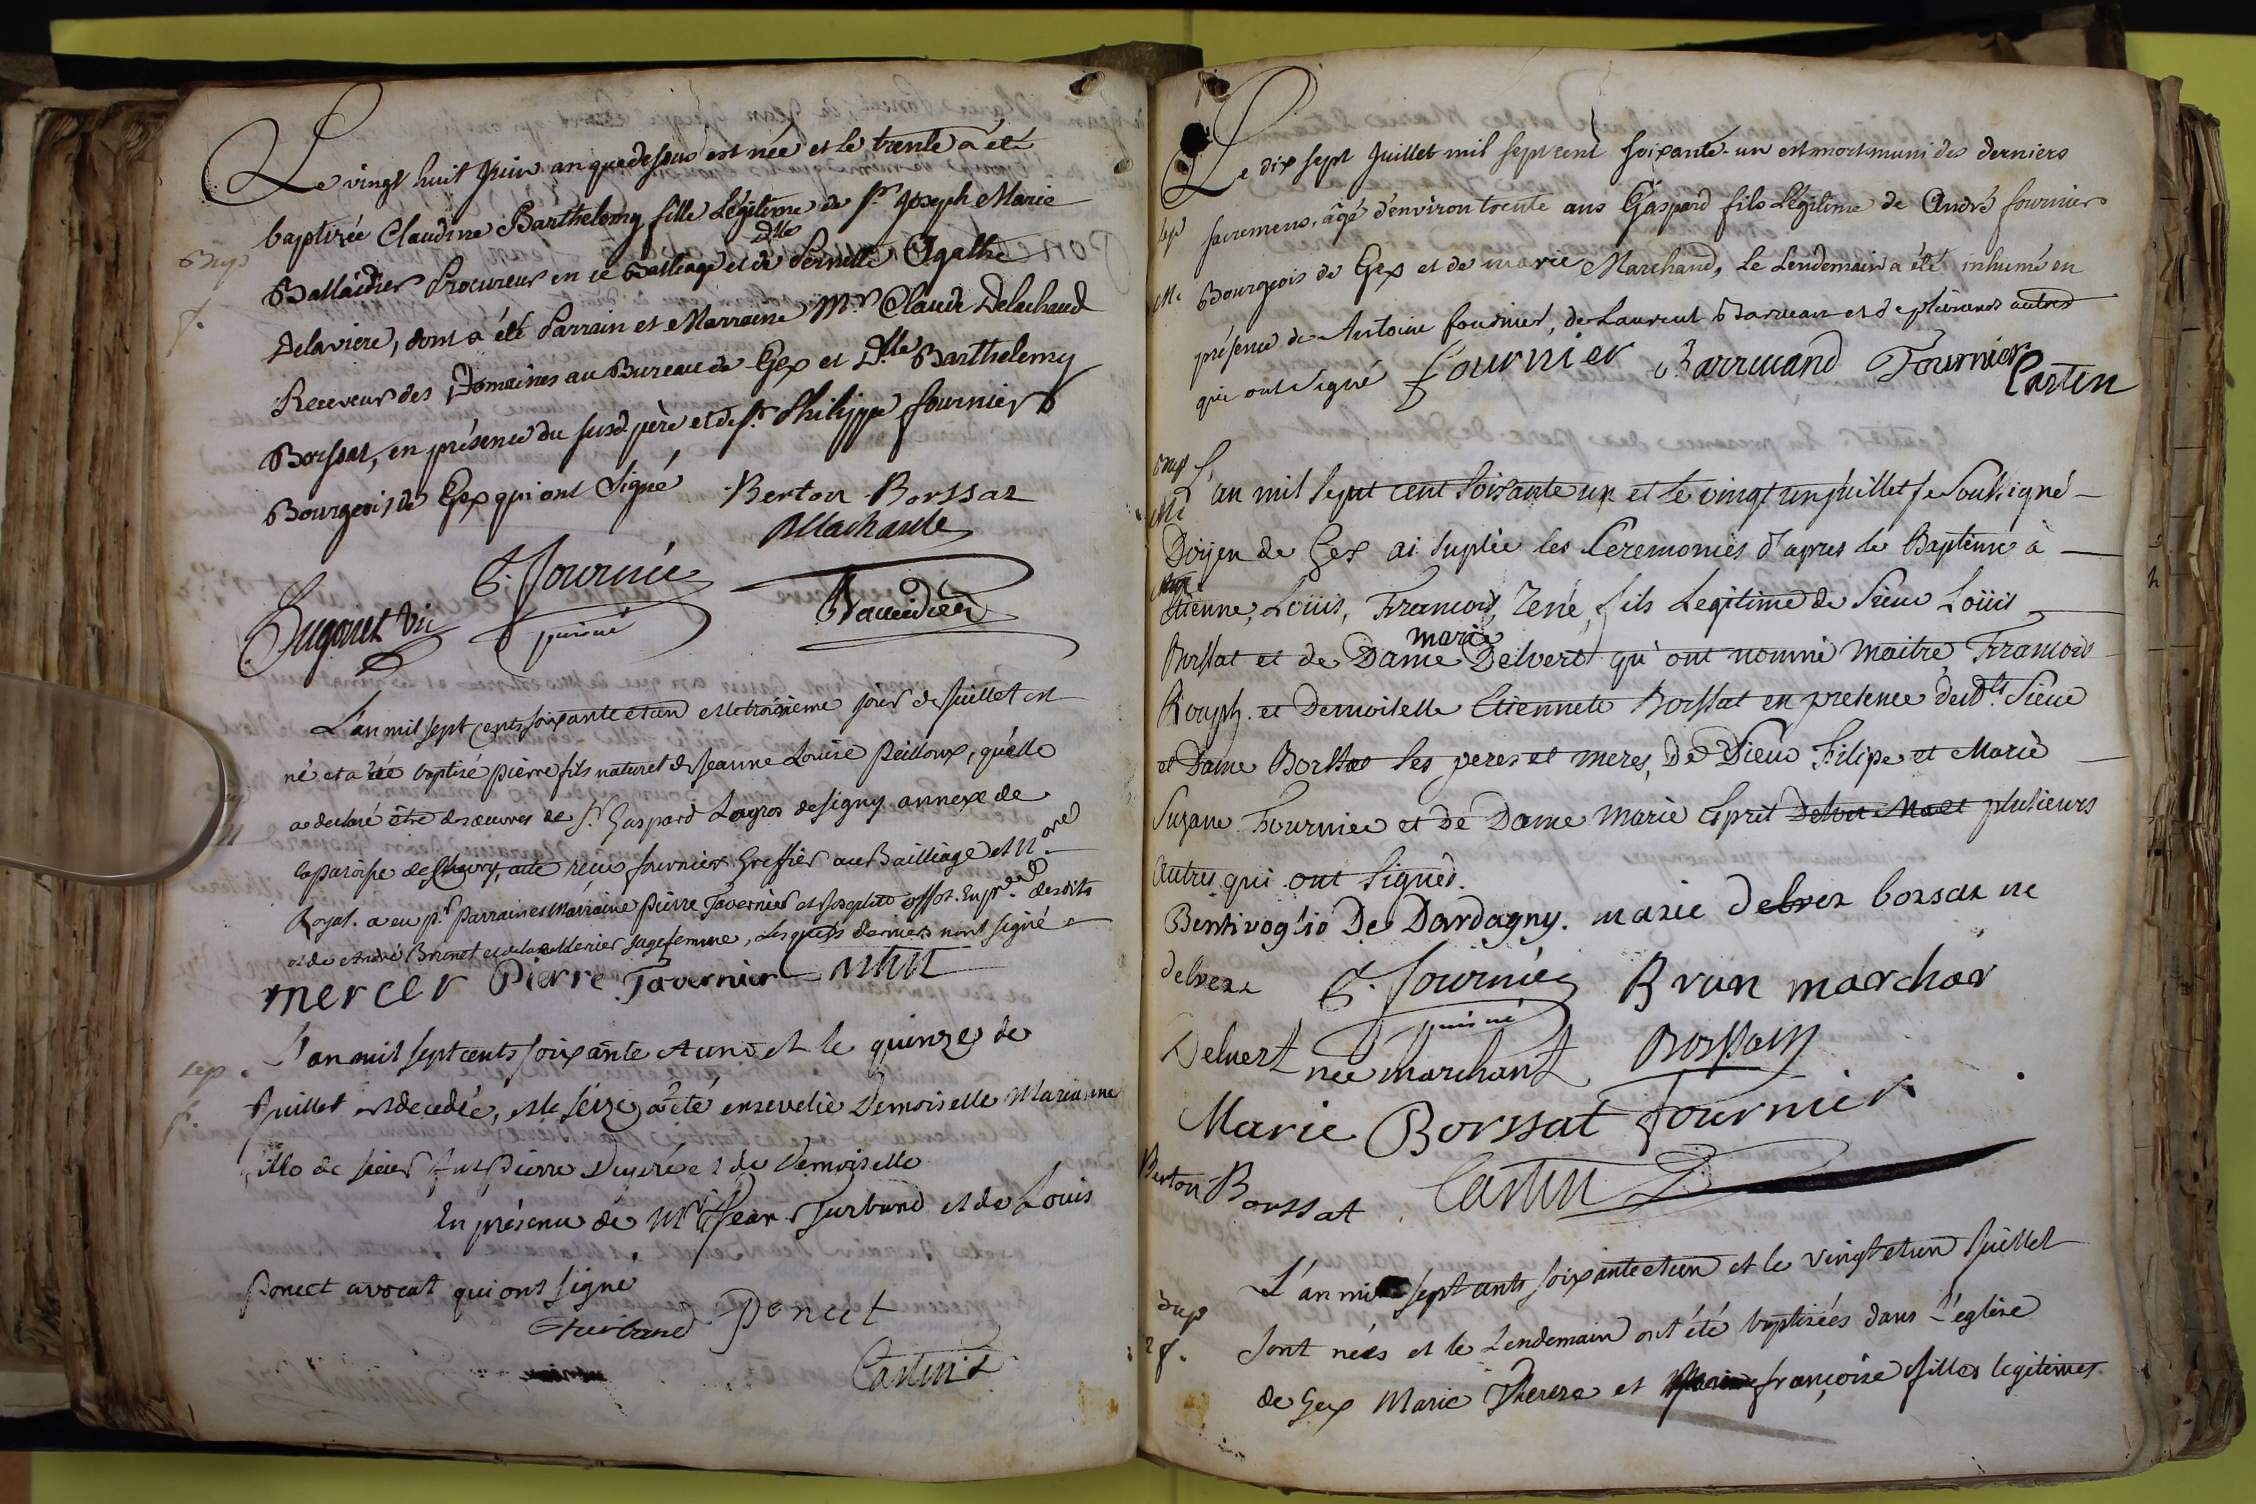 Le vingt huit Juin an que dessus est née et le trente a été
Bap
baptizée Claudine Barthelemy fille Légitime de Sr. Joseph Marie
f.
Ballaidier Procureur en ce Balliage et de Dlle Pernette Agathe
Delaviere, dont a été Parrain et Marraine Mr. Claude Delachaud
Receveur des Domaines au Bureau de Gex et Dlle Barthelemy
Borssat, en présence du susd père et de Sr. Philippe fournier
Bourgeois de Gex qui ont Signé Berton Borssat
Delachaude
P. Fournié
puiné
L'an mil sept cents soixante et un et le troisieme jour de Juillet est
né et a été baptisé pierre fils naturel de Jeanne Louise Peilloux, quelle
a declaré être des œuvres de Sr. Gaspard Legros de Signy annexe de
la paroisse de Chevry, acte reçu fournier Greffier au Bailliage et N.ore
Royal. a eu pr. parrain et Marraine pierre Tavernier et Josephte
et de André Brunet et de la Mercier sage femme, Lesquels derniers n'ont signé
mercer Pierre Tavernier
sep. L'an mil sept cents soixante et un et le quinze de
f. Juillet est decedée, et le seize a été ensevelie Demoiselle Marianne
fille de sieur Pierre Dupré et de Demoiselle
En présence de Mr. Jean Turband et de Louis
Ponect avocat qui ont signé
Turband Ponect
Castin
Le dix sept Juillet mil sept cent soixante-un est mort muni des derniers
sep sacremens, âgé d'environ trente ans Gaspard fils Légitime de André fournier
M. Bourgeois de Gex et de marie Marchand, le Lendemain a été inhumé en
présence de Antoine fournier, de Laurent Barruan et de plusieurs autres
qui ont signé fournier Barruand Fournier
Castin
Bap
L'an mil sept cent soixante un et le vingt un juillet je soussigné
Doijen de Gex ai suplée les Ceremonies d'apres le Bapteme à
Etienne, Loüis, Francois, René, fils Legitime de Sieur Loüis
marie
Borssat et de Dame Delvert qu'ont nommé maitre Francois
Rouph. et Demoiselle Etiennete Borssat en presence desdts Sieur
et Dame Borssat les peres et meres, De Sieur Filipe et Marie
Suzane Fournier et de Dame Marie Esprit plusieurs
autres qui ont signés.
Bentivoglio De Dardagny. marie delver borsat ne
delverx P. Fournié Brun marchar
puiné
Delvert née marchant Borssat
Marie Borssat Fournier
Berton Borssat Castin
Bap L'an mil sept cents soixante et un et le vingt et un Juillet
2 f. sont nées et le Lendemain ont été baptisées dans l'église
de Gex Marie Therese et françoise filles legitimes